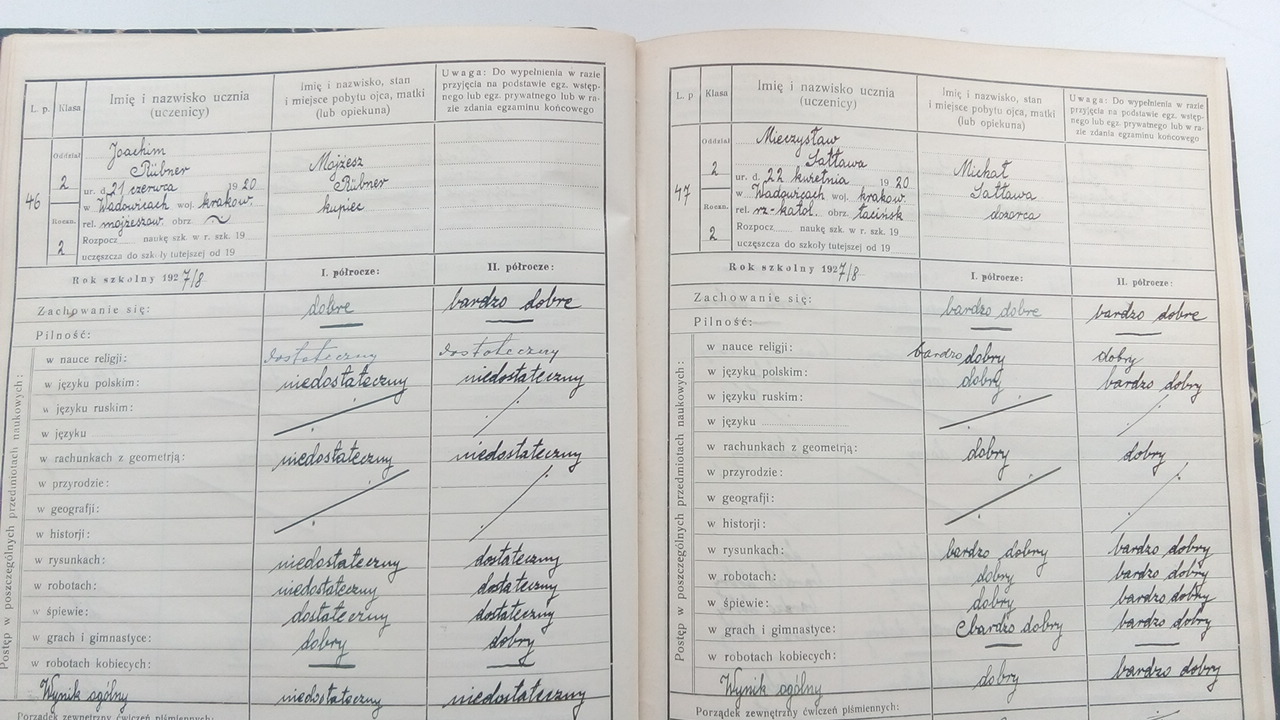 L. p.
Klasa
Imię i nazwisko ucznia
(uczenicy)
Imię i nazwisko, stan
i miejsce pobytu ojca, matki
(lub opiekuna)
Uwaga: Do wypełnienia w razie
przyjęcia na podstawie egz. wstęp-
nego lub egz. prywatnego lub w ra-
zie zdania egzaminu końcowego
46
Oddział
2
Roczn.
2
Joachim
Rübner
ur. d. 21 czerwca 1920
w Wadowicach woj. krakow.
rel. mojżeszow. obrz. ~
Rozpocz. naukę szk. w r. szk. 19
uczęszcza do szkoły tutejszej od 19
Mojżesz
Rübner
kupiec
Rok szkolny 1927/8
I. półrocze:
II. półrocze:
Zachowanie się: dobre bardzo dobre
Pilność: — —
Postęp w poszczególnych przedmiotach naukowych:
w nauce religji: dostateczny dostateczny
w języku polskim: niedostateczny niedostateczny
w języku ruskim:
w języku
w rachunkach z geometrją: niedostateczny niedostateczny
w przyrodzie:
w geografji:
w historji:
w rysunkach: niedostateczny dostateczny
w robotach: niedostateczny dostateczny
w śpiewie: dostateczny dostateczny
w grach i gimnastyce: dobry dobry
w robotach kobiecych: — —
Wynik ogólny niedostateczny niedostateczny
Porządek zewnętrzny ćwiczeń piśmiennych:
L. p.
Klasa
Imię i nazwisko ucznia
(uczenicy)
Imię i nazwisko, stan
i miejsce pobytu ojca, matki
(lub opiekuna)
Uwaga: Do wypełnienia w razie
przyjęcia na podstawie egz. wstęp-
nego lub egz. prywatnego lub w ra-
zie zdania egzaminu końcowego
47
Oddział
2
Roczn.
2
Mieczysław
Sałława
ur. d. 22 kwietnia 1920
w Wadowicach woj. krakow.
rel. rz-katol. obrz. łacińsk
Rozpocz. naukę szk. w r. szk. 19
uczęszcza do szkoły tutejszej od 19
Michał
Sałława
dozorca
Rok szkolny 1927/8
I. półrocze:
II. półrocze:
Zachowanie się: bardzo dobre bardzo dobre
Pilność: — —
Postęp w poszczególnych przedmiotach naukowych:
w nauce religji: bardzo dobry dobry
w języku polskim: dobry bardzo dobry
w języku ruskim:
w języku
w rachunkach z geometrją: dobry dobry
w przyrodzie:
w geografji:
w historji:
w rysunkach: bardzo dobry bardzo dobry
w robotach: dobry bardzo dobry
w śpiewie: dobry bardzo dobry
w grach i gimnastyce: bardzo dobry bardzo dobry
w robotach kobiecych: — —
Wynik ogólny dobry bardzo dobry
Porządek zewnętrzny ćwiczeń piśmiennych: